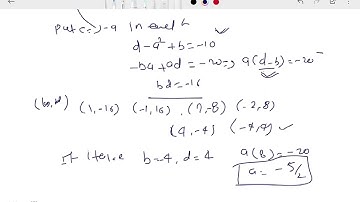 put c=-a in eval
d-a²+b=-10
-ba+ad=-20⇒ a(d-b)=-20
bd=-16
(b,d) (1,-16) (-1,16) (2,-8) (-2,8)
(4,-4) (-4,4)
If b=4, d=4 a(8)=-20
a=-5/2